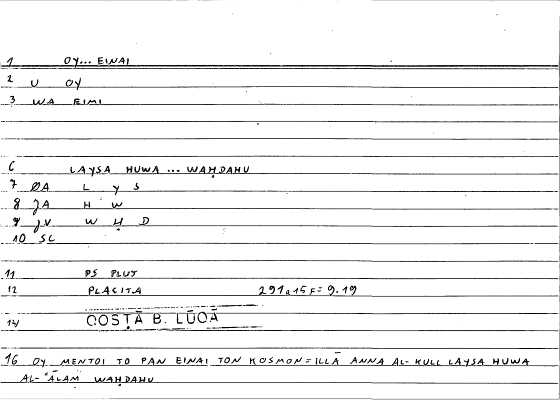 1 OY... EINAI
2 U OY
3 WA EIMI
6 LAYSA HUWA ... WAḤDAHU
7 ØA L Y S
8 JA H W
9 JV W Ḥ D
10 SL
11 PS PLUT
12 PLACITA 291a15F = 9.19
14 QOSṬĀ B. LŪQĀ
16 OY MENTOI TO PAN EINAI TON KOSMON = ILLĀ ANNA AL-KULL LAYSA HUWA
AL-ʿĀLAM WAḤDAHU